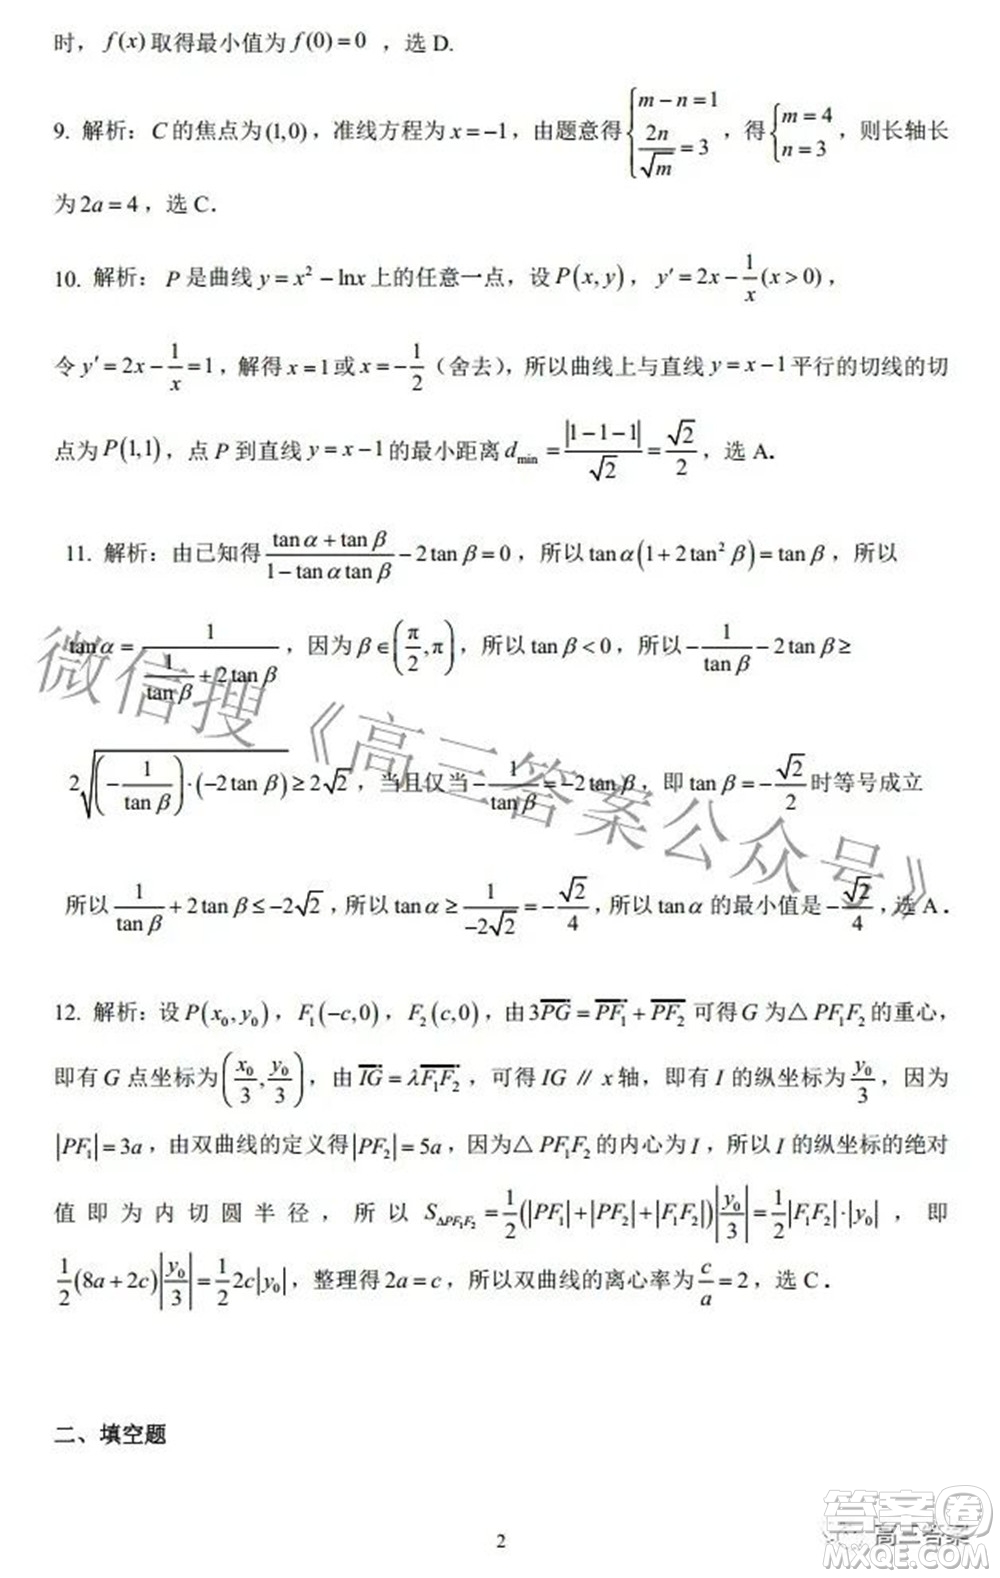 时，f(x)取得最小值为 f(0)=0 ，选 D.
9. 解析：C 的焦点为(1,0)，准线方程为 x=-1，由题意得{m-n=1, 2n/√m=3，得{m=4, n=3，则长轴长
为 2a=4，选 C．
10. 解析：P 是曲线 y=x²-lnx 上的任意一点，设 P(x,y)，y′=2x-1/x(x>0)，
令 y′=2x-1/x=1，解得 x=1或 x=-1/2（舍去），所以曲线上与直线 y=x-1平行的切线的切
点为 P(1,1)，点 P 到直线 y=x-1 的最小距离 d_min=|1-1-1|/√2=√2/2，选 A．
11. 解析：由已知得 (tanα+tanβ)/(1-tanαtanβ)-2tanβ=0，所以 tanα(1+2tan²β)=tanβ，所以
tanα=1/(1/tanβ+2tanβ)，因为 β∈(π/2,π)，所以 tanβ<0，所以-1/tanβ-2tanβ≥
2√((-1/tanβ)·(-2tanβ))≥2√2，当且仅当-1/tanβ=-2tanβ，即 tanβ=-√2/2时等号成立
所以 1/tanβ+2tanβ≤-2√2，所以 tanα≥1/(-2√2)=-√2/4，所以 tanα 的最小值是-√2/4，选 A．
12. 解析：设 P(x₀,y₀)，F₁(-c,0)，F₂(c,0)，由 3PG=PF₁+PF₂ 可得 G 为△PF₁F₂ 的重心，
即有 G 点坐标为(x₀/3,y₀/3)，由 IG=λF₁F₂，可得 IG∥x 轴，即有 I 的纵坐标为 y₀/3，因为
|PF₁|=3a，由双曲线的定义得|PF₂|=5a，因为△PF₁F₂ 的内心为 I，所以 I 的纵坐标的绝对
值即为内切圆半径，所以 S_ΔPF₁F₂=1/2(|PF₁|+|PF₂|+|F₁F₂|)|y₀/3|=1/2|F₁F₂|·|y₀|，即
1/2(8a+2c)|y₀/3|=1/2 2c|y₀|，整理得 2a=c，所以双曲线的离心率为 c/a=2，选 C．
二、填空题
2
微信搜《高三答案公众号》
高三答案
答案卷
MXQE.COM